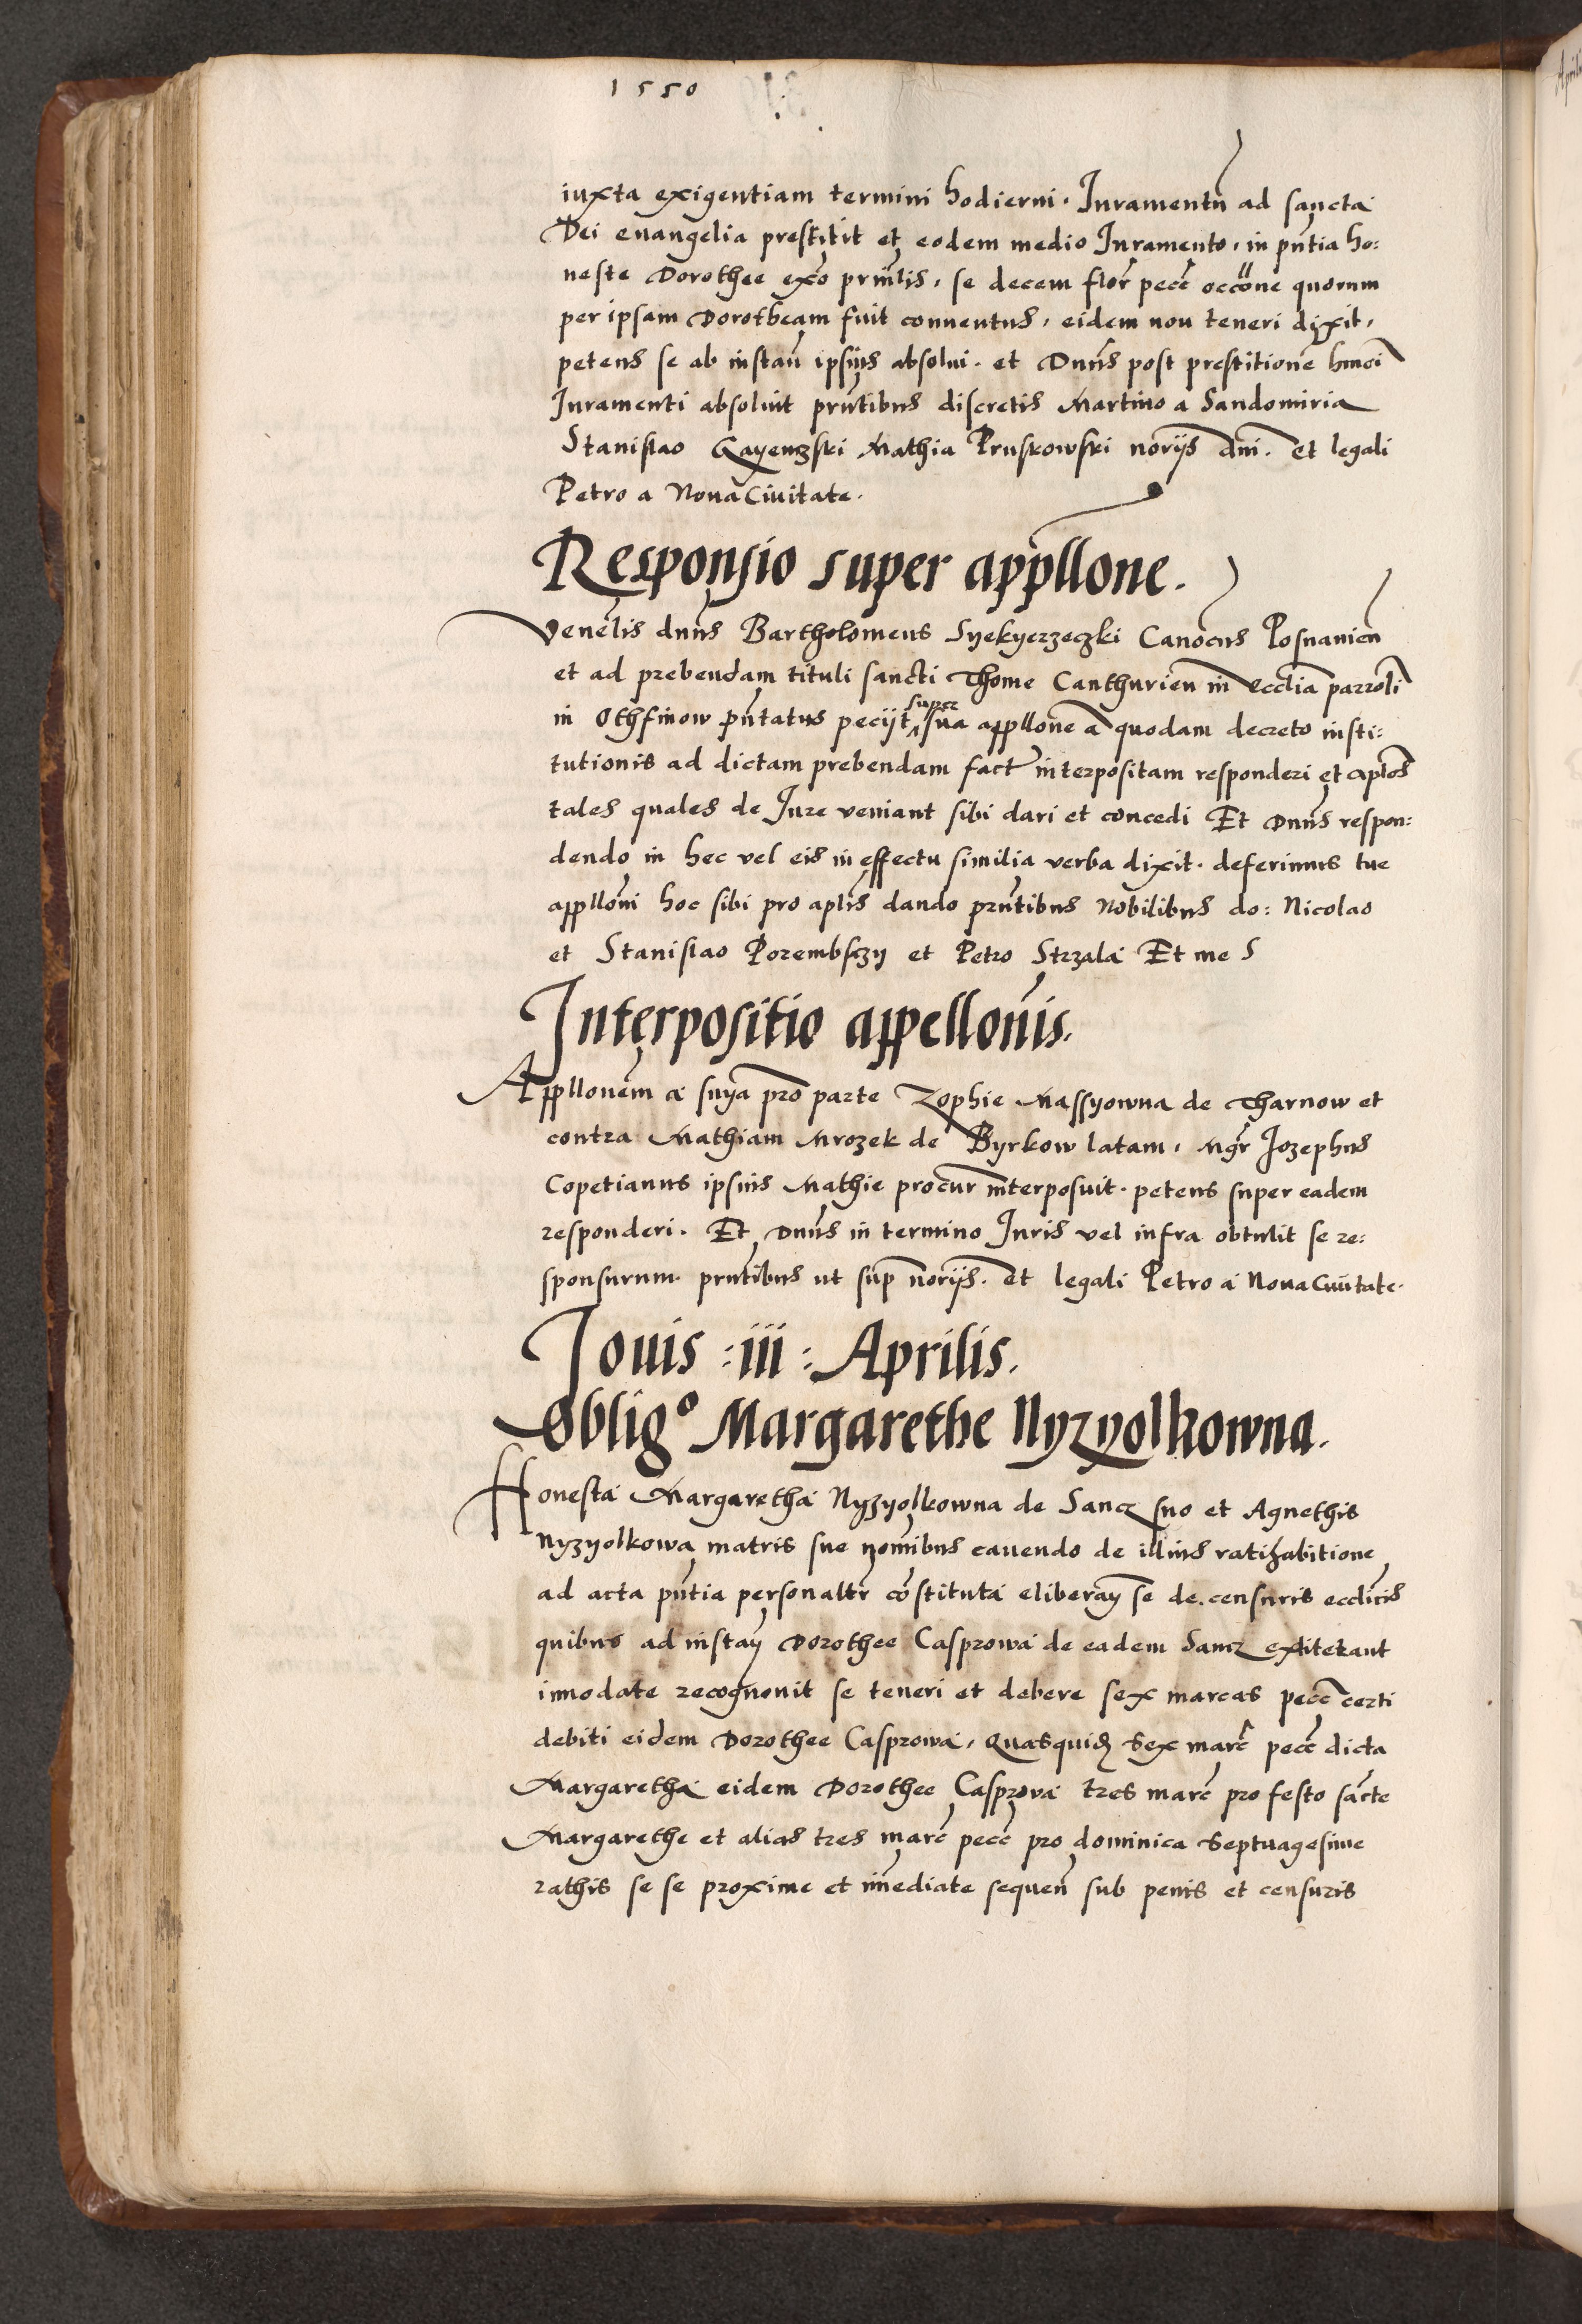 1550
iuxta exigentiam termini hodierni. Iuramentũ ad sancta
Dei euangelia prestitit et eodem medio Iuramento, in pñtia ho:
neste Dorothee exõ prinĩlis, se decem flor̃ pecc̃ occõne quorum
per ipsam Dorotheam fuit conuentus, eidem non teneri dixit,
petens se ab instañ ipsius absolui. et Dnñs post prestitionẽ hmõi
Iuramenti absoluit prñtibus discretis Martino a Sandomiria
Stanislao Gayenczski Mathia Pruskowski norijs dñi. et legali
Petro a Noua Ciuitate.
Responsio super appllone.
Venẽlis dnñs Bartholomeus Syekyerzeczki Canocus Posnanieñ
et ad prebendam tituli sancti Thome Canthurieñ in ecclia parrolĩ
in Othfinow pñtatus pecijt super sua appllone a quodam decreto insti:
tutionis ad dictam prebendam fact̃ interpositam responderi et aplõs
tales quales de Iure veniant sibi dari et concedi Et Dnñs respon:
dendo in hec vel eis in effectu similia verba dixit. deferimus tue
appllõni hoc sibi pro aplis̃ dando prñtibus Nobilibus do: Nicolao
et Stanislao Porembsczy et Petro Strzala Et me S
Interpositio appellonis.
Appllonem a snỹa pro parte Zophie Massyowna de Tharnow et
contra Mathiam Mrozek de Byrkow latam, Mgr̃ Iozephus
Copetianus ipsius Mathie procur̃ interposuit. petens super eadem
responderi. Et Dnñs in termino Iuris vel infra obtulit se re:
sponsurum. prñtibus ut sup̃ norijs. et legali Petro a Noua Ciuitate.
Iouis : iii : Aprilis.
Obligº Margarethe Nyzyolkowna.
Honesta Margaretha Nyzyolkowna de Sancz suo et Agnethis
Nyzyolkowa matris sue nomĩbus cauendo de illius ratihabitione
ad acta pñtia personaltr̃ cõstituta eliberañ se de censuris ecclicis
quibus ad instañ Dorothee Casprowa de eadem Sancz extiterant
innodate recognouit se teneri et debere sex marcas pecc̃ certi
debiti eidem Dorothee Casprowa, Quasquid̃ Sex marc̃ pecc̃ dicta
Margaretha eidem Dorothee Casprova tres marc̃ pro festo sãcte
Margarethe et alias tres marc̃ pecc̃ pro dominica Septuagesime
rathis se se proxime et im̃ediate sequeñ sub penis et censuris